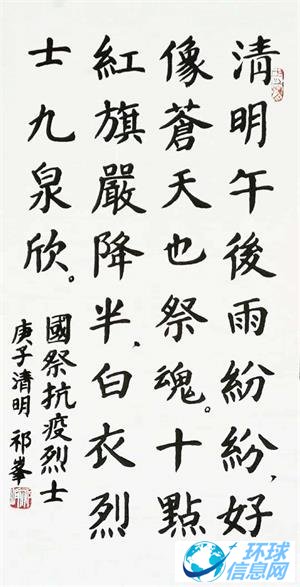 清明午後雨紛紛，好
像蒼天也祭魂。十點
紅旗嚴降半，白衣烈
士九泉欣。
國祭抗疫烈士
庚子清明 祁峯
环球
信息网